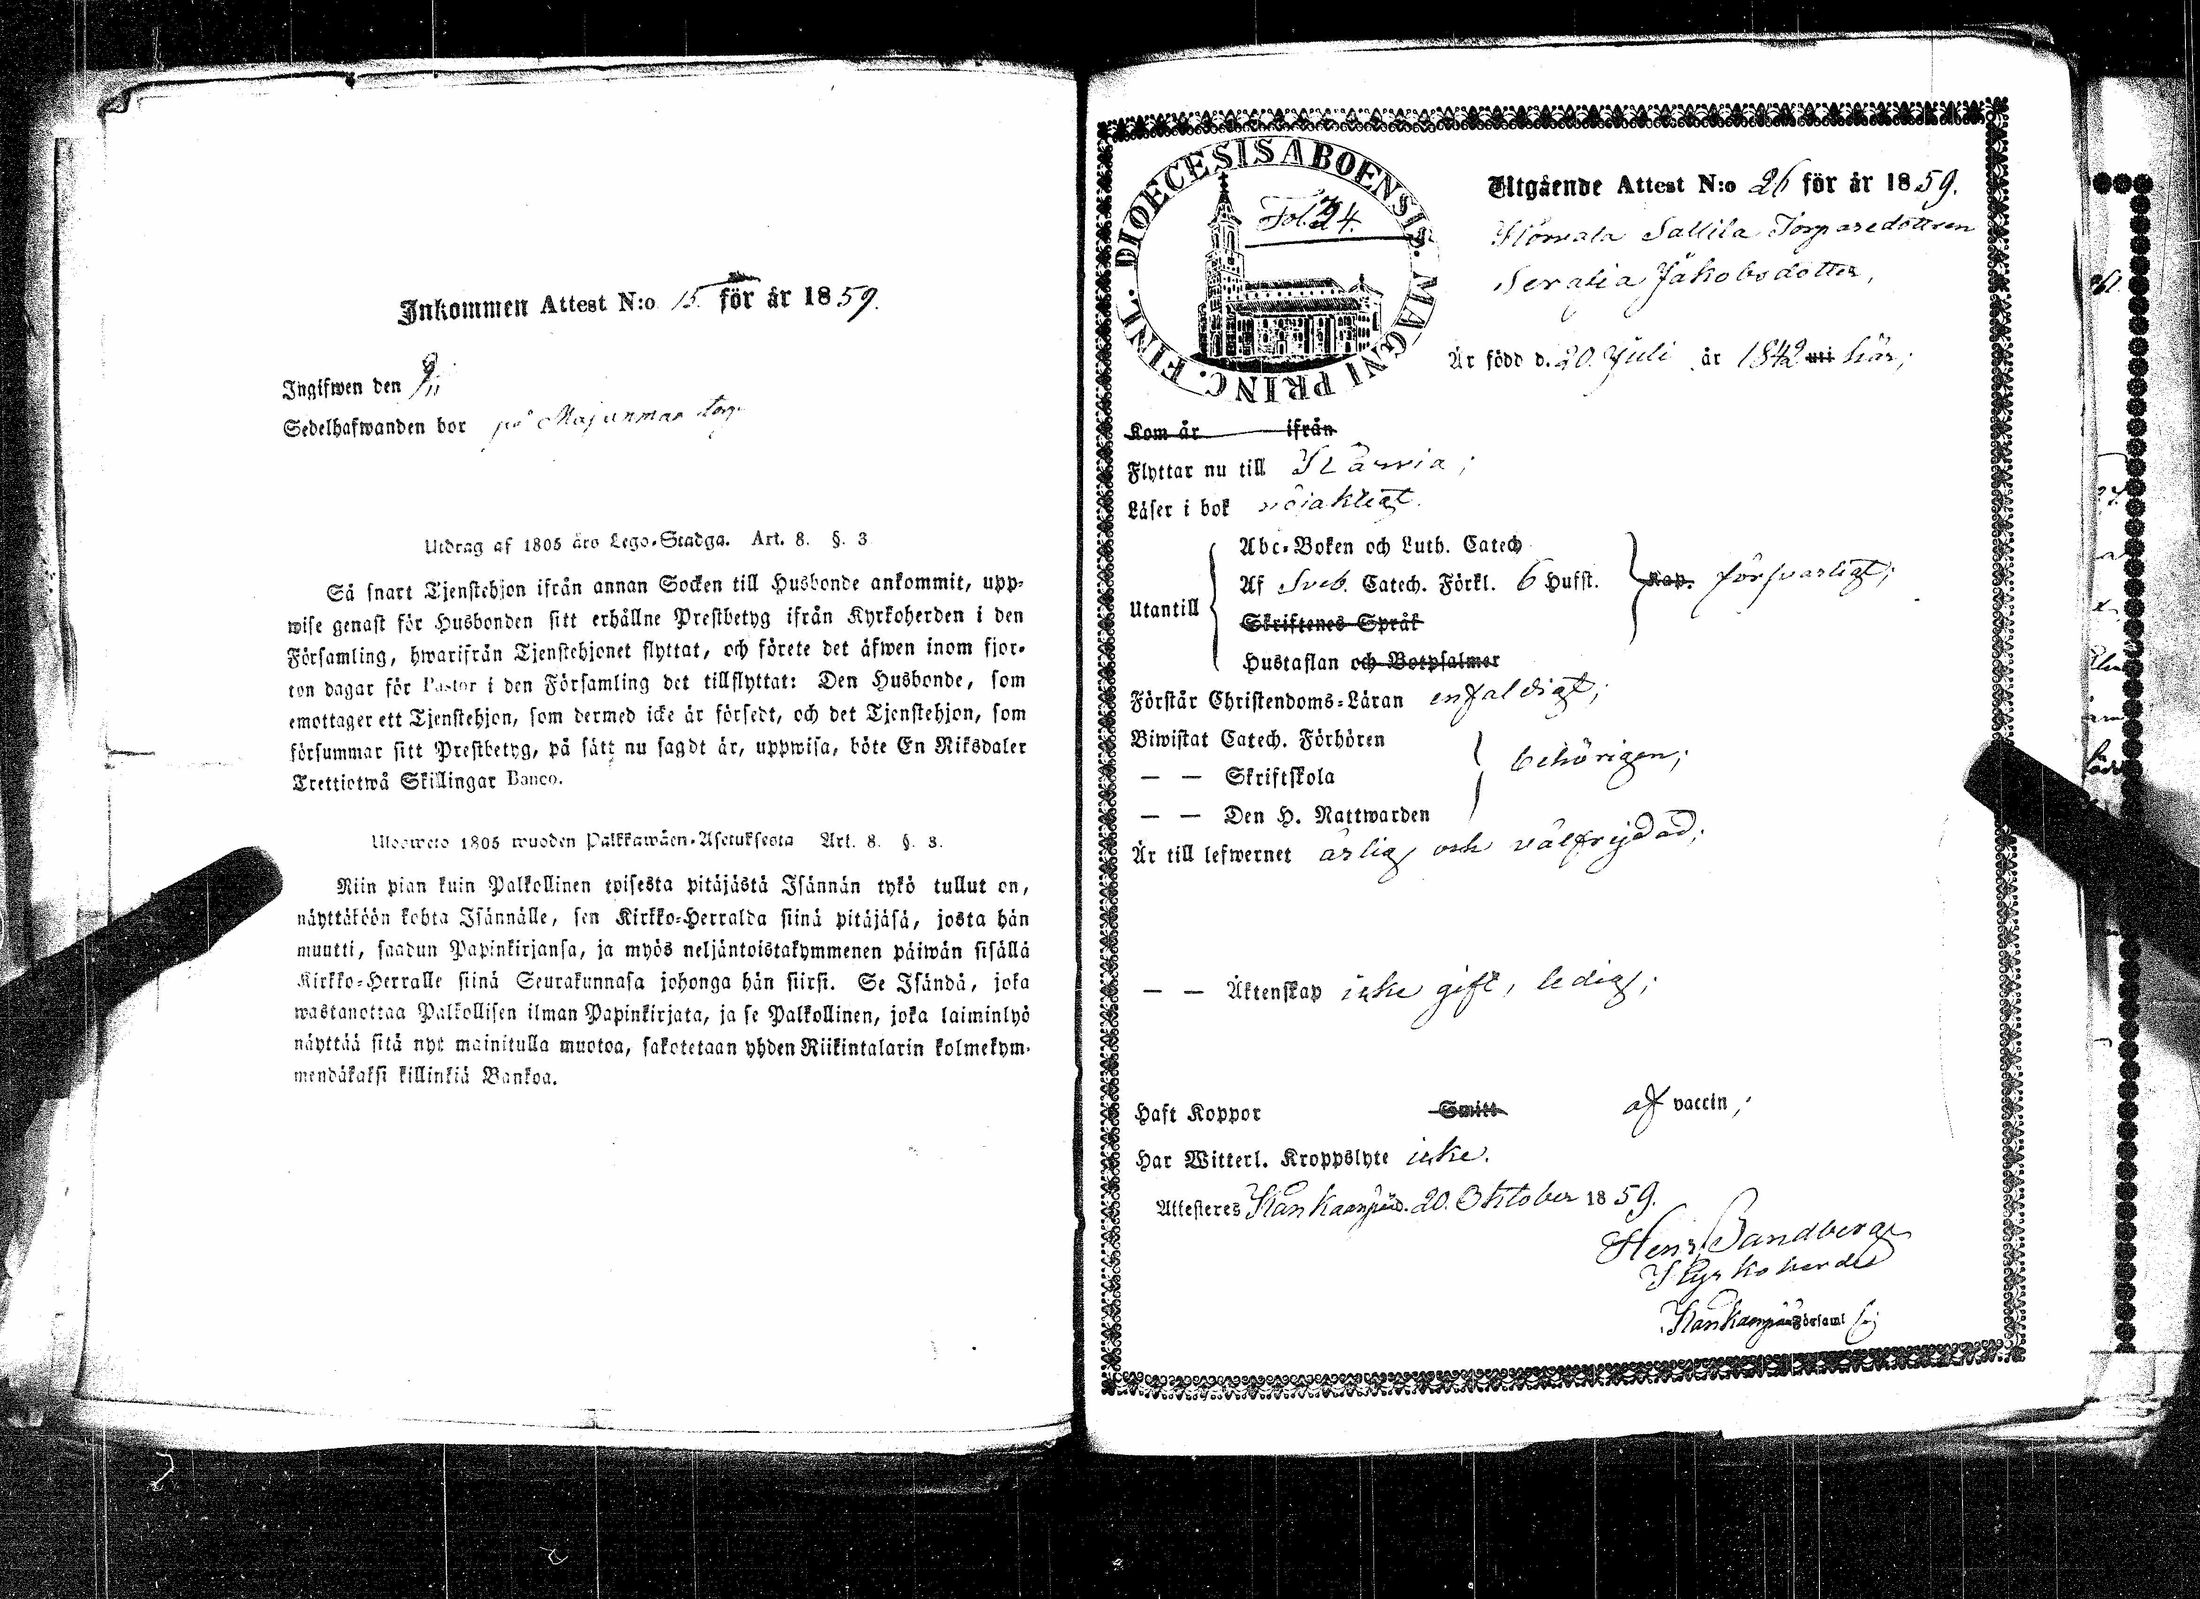 Inkommen Attest N:o 15 för år 1859.
Ingifwen den 9/11
Sedelhafwanden bor på Majanmaa torp
Utdrag af 1805 års Lego-Stadga. Art. 8. §. 3
Så snart Tjenstehjon ifrån annan Socken till Husbonde ankommit, upp-
wise genast för Husbonden sitt erhållne Prestbetyg ifrån Kyrkoherden i den
Församling, hwarifrån Tjenstehjonet flyttat, och förete det äfwen inom fjor-
ton dagar för Pastor i den Församling det tillflyttat: Den Husbonde, som
emottager ett Tjenstehjon, som dermed icke är försedt, och det Tjenstehjon, som
försummar sitt Prestbetyg, på sätt nu sagdt är, uppwisa, böte En Riksdaler
Trettiotwå Skillingar Banco.
Ulosweto 1805 wuoden Palkkawäen-Asetuksesta Art. 8. §. 3.
Niin pian kuin Palkollinen toisesta pitäjästä Isännän tykö tullut on,
näyttäköön kohta Isännälle, sen Kirkko-Herralda siinä pitäjäsä, josta hän
muutti, saadun Papinkirjansa, ja myös neljäntoistakymmenen päiwän sisällä
Kirkko-Herralle siinä Seurakunnasa johonga hän siirsi. Se Isändä, joka
wastanottaa Palkollisen ilman Papinkirjata, ja se Palkollinen, joka laiminlyö
näyttää sitä nyt mainitulla muotoa, sakotetaan yhden Riikintalarin kolmekym-
mendäkaksi killinkiä Bankoa.
DIOECESIS ABOENSIS. MAGNI PRINC. FINL.
Fol. 24.
Utgående Attest N:o 26 för år 1859.
Sallila Torparedottren
Serafia Jakobsdotter,
Är född d. 20 Juli år 1842 uti här;
Kom år ifrån
Flyttar nu till Kärvia;
Läser i bok nöjaktigt.
Abc-Boken och Luth. Catech
Utantill
Af Sveb. Catech. Förkl. 6 Hufst. Kap. försvarligt;
Skriftenes Språk
Hustaflan och Botpsalmer
Förstår Christendoms-Läran enfaldigt;
Biwistat Catech. Förhören
— — Skriftskola behörigen;
— — Den H. Nattwarden
Är till lefwernet ärlig och välfrejdad;
— — Äktenskap icke gift, ledig;
Haft Koppor Smitt af vaccin;
Har Witterl. Kroppslyte icke.
Attesteras Kankaanpää d. 20. Oktober 1859.
Henr. Sandberg
Kyrkoherde
Kankaanpää Församl